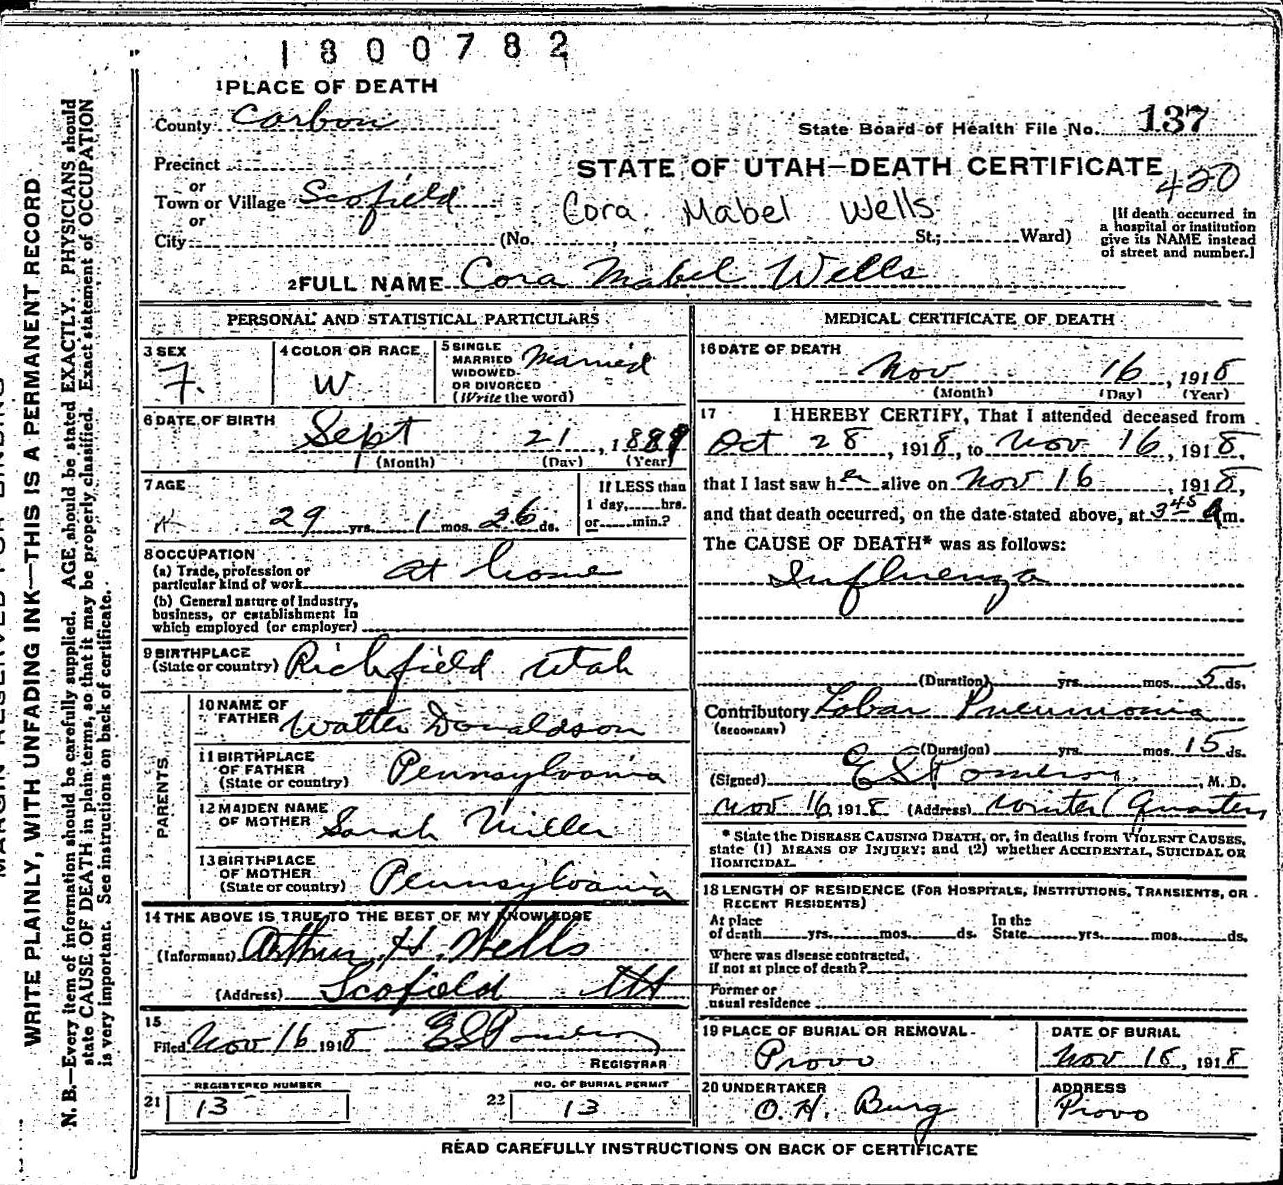 1800782
1 PLACE OF DEATH
County Carbon
State Board of Health File No. 137
Precinct
STATE OF UTAH—DEATH CERTIFICATE
420
or
Town or Village Scofield
Cora Mabel Wells
or
City (No. , St.; Ward)
[If death occurred in
a hospital or institution
give its NAME instead
of street and number.]
2 FULL NAME Cora Mabel Wells
PERSONAL AND STATISTICAL PARTICULARS
3 SEX
F.
4 COLOR OR RACE
W
5 SINGLE
MARRIED
WIDOWED
OR DIVORCED
(Write the word)
Married
6 DATE OF BIRTH
Sept 21, 1889
(Month) (Day) (Year)
7 AGE
29 yrs. 1 mos. 26 ds.
If LESS than
1 day, hrs.
or min.?
8 OCCUPATION
(a) Trade, profession or
particular kind of work at home
(b) General nature of Industry,
business, or establishment in
which employed (or employer)
9 BIRTHPLACE
(State or country) Richfield Utah
PARENTS
10 NAME OF
FATHER Walter Donaldson
11 BIRTHPLACE
OF FATHER
(State or country) Pennsylvania
12 MAIDEN NAME
OF MOTHER Sarah Miller
13 BIRTHPLACE
OF MOTHER
(State or country) Pennsylvania
14 THE ABOVE IS TRUE TO THE BEST OF MY KNOWLEDGE
(Informant) Arthur H. Wells
(Address) Scofield
15
Filed Nov 16 1918 E S Pomeroy
REGISTRAR
21
REGISTERED NUMBER
13
22
NO. OF BURIAL PERMIT
13
MEDICAL CERTIFICATE OF DEATH
16 DATE OF DEATH
Nov 16, 1918
(Month) (Day) (Year)
17 I HEREBY CERTIFY, That I attended deceased from
Oct 28, 1918, to Nov 16, 1918,
that I last saw her alive on Nov 16, 1918,
and that death occurred, on the date stated above, at 3 45 A m.
The CAUSE OF DEATH* was as follows:
Influenza
(Duration) yrs. mos. 5 ds.
Contributory Lobar Pneumonia
(SECONDARY)
(Duration) yrs. mos. 15 ds.
(Signed) E S Pomeroy, M. D.
Nov 16 1918 (Address) Winter Quarters
* State the DISEASE CAUSING DEATH, or, in deaths from VIOLENT CAUSES,
state (1) MEANS OF INJURY; and (2) whether ACCIDENTAL, SUICIDAL OR
HOMICIDAL.
18 LENGTH OF RESIDENCE (FOR HOSPITALS, INSTITUTIONS, TRANSIENTS, OR
RECENT RESIDENTS)
At place
of death yrs. mos. ds.
In the
State yrs. mos. ds.
Where was disease contracted,
if not at place of death?
Former or
usual residence
19 PLACE OF BURIAL OR REMOVAL
Provo
DATE OF BURIAL
Nov 18, 1918
20 UNDERTAKER
O. H. Burg
ADDRESS
Provo
READ CAREFULLY INSTRUCTIONS ON BACK OF CERTIFICATE
WRITE PLAINLY, WITH UNFADING INK—THIS IS A PERMANENT RECORD
N. B.—Every item of information should be carefully supplied. AGE should be stated EXACTLY. PHYSICIANS should
state CAUSE OF DEATH in plain terms, so that it may be properly classified. Exact statement of OCCUPATION
is very important. See instructions on back of certificate.